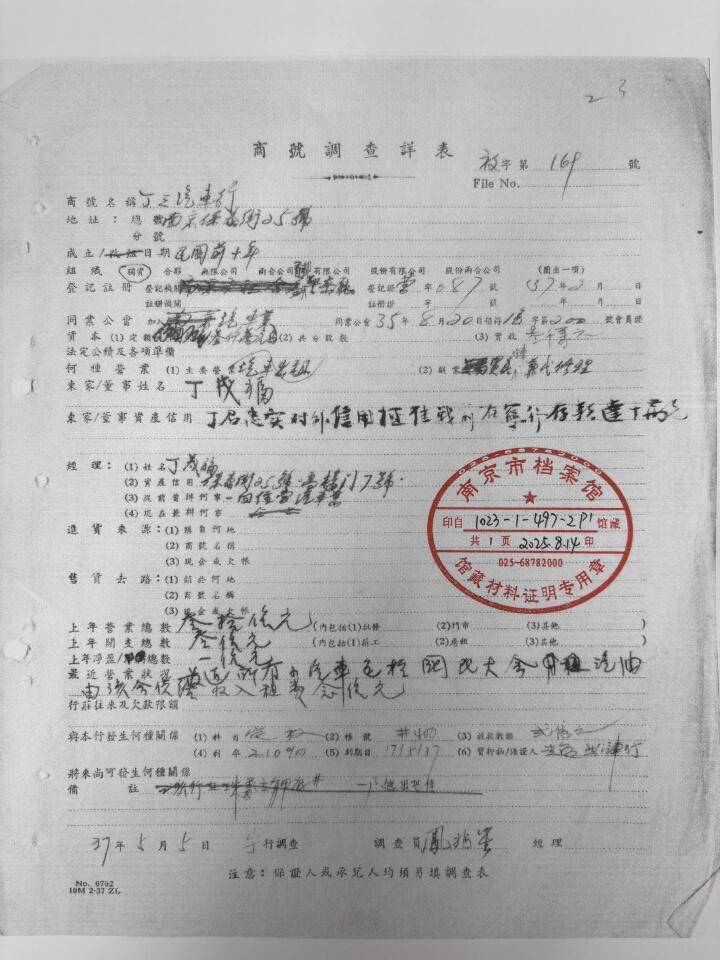 23
商號調查詳表
字第 169 號
File No.
商號名稱 丁三汽車行
地址：總號 南京保泰街25號
分號
成立/改組日期 民國前十年
組織 獨資 合夥 無限公司 兩合公司 有限公司 股份有限公司 股份兩合公司 (圈出一項)
登記註冊 登記機關 登記證 營字 087 號 37年2月 日
註冊機關 註冊證 字 號 年 月 日
同業公會 加入 南京汽車業 同業公會 35年8月20日領得 字第200號會員證
資本 (1)定額 (2)共分股數 (3)實收
法定公積及各項準備
何種營業 (1)主要營業 汽車出租 (2)副業 兼代修理
東家/董事姓名 丁茂福
東家/董事資產信用 丁君忠实对外信用極佳戰前在寧行存款達十萬元
經理：(1)姓名 丁茂福
(2)資產信用 保泰街25號 高樓门7號
(3)從前曾辦何事 一向經營汽車業
(4)現在兼辦何事
進貨來源：(1)購自何地
(2)商號名稱
(3)現金或欠帳
售貨去路：(1)銷於何地
(2)商號名稱
(3)現金或欠帳
上年營業總數 叁拾億元 (內包括(1)批發 (2)門市 (3)其他 )
上年開支總數 叁億元 (內包括(1)薪工 (2)房租 (3)其他 )
上年淨盈/總數 一億元
最近營業狀況 最近所有汽車包於國民大会 租汽油
由該会供應收入租費念億元
行莊往來及欠款限額
與本行發生何種關係 (1)科目 (2)帳號 #40 (3)放款數額 弍億元
(4)利率 21090 (5)到期日 17/5/37 (6)質押物/保證人
將來尚可發生何種關係
備註
37年5月5日 寧行調查 調查員 經理
注意：保證人或承兌人均須另填調查表
No. 0702
10M 2-37 ZL
025-68782000
南京市档案馆
印自 1023-1-497-291 馆藏
共 1 页 2025.8.14 印
025-68782000
馆藏材料证明专用章